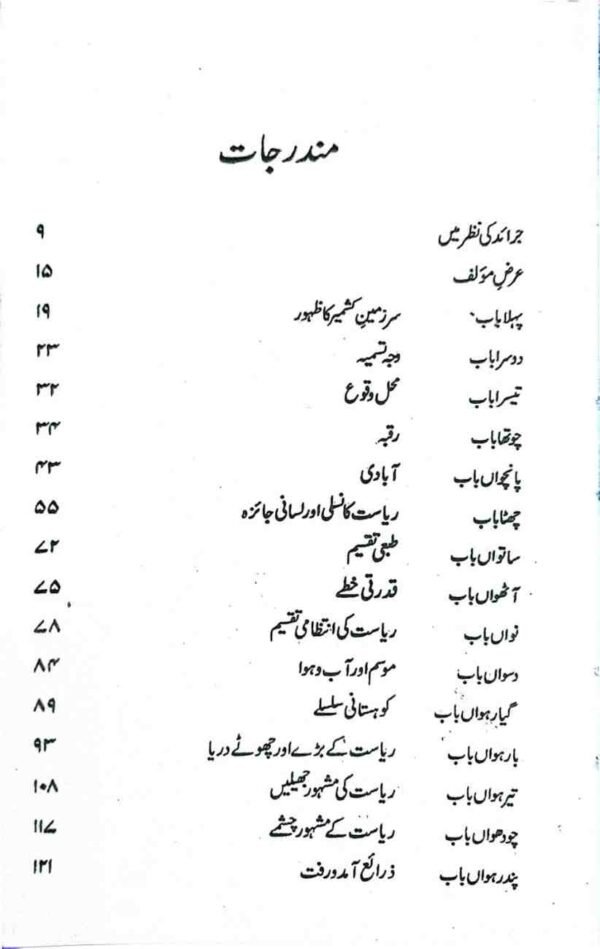 مندرجات
جرائد کی نظر میں ۹
عرضِ مؤلف ۱۵
پہلا باب سرزمینِ کشمیر کا ظہور ۱۹
دوسرا باب وجہ تسمیہ ۲۳
تیسرا باب محل وقوع ۳۲
چوتھا باب رقبہ ۳۴
پانچواں باب آبادی ۴۳
چھٹا باب ریاست کا نسلی اور لسانی جائزہ ۵۵
ساتواں باب طبعی تقسیم ۷۲
آٹھواں باب قدرتی خطے ۷۵
نواں باب ریاست کی انتظامی تقسیم ۷۸
دسواں باب موسم اور آب و ہوا ۸۴
گیارہواں باب کوہستانی سلسلے ۸۹
بارہواں باب ریاست کے بڑے اور چھوٹے دریا ۹۳
تیرہواں باب ریاست کی مشہور جھیلیں ۱۰۸
چودھواں باب ریاست کے مشہور چشمے ۱۱۷
پندرہواں باب ذرائع آمد و رفت ۱۲۱